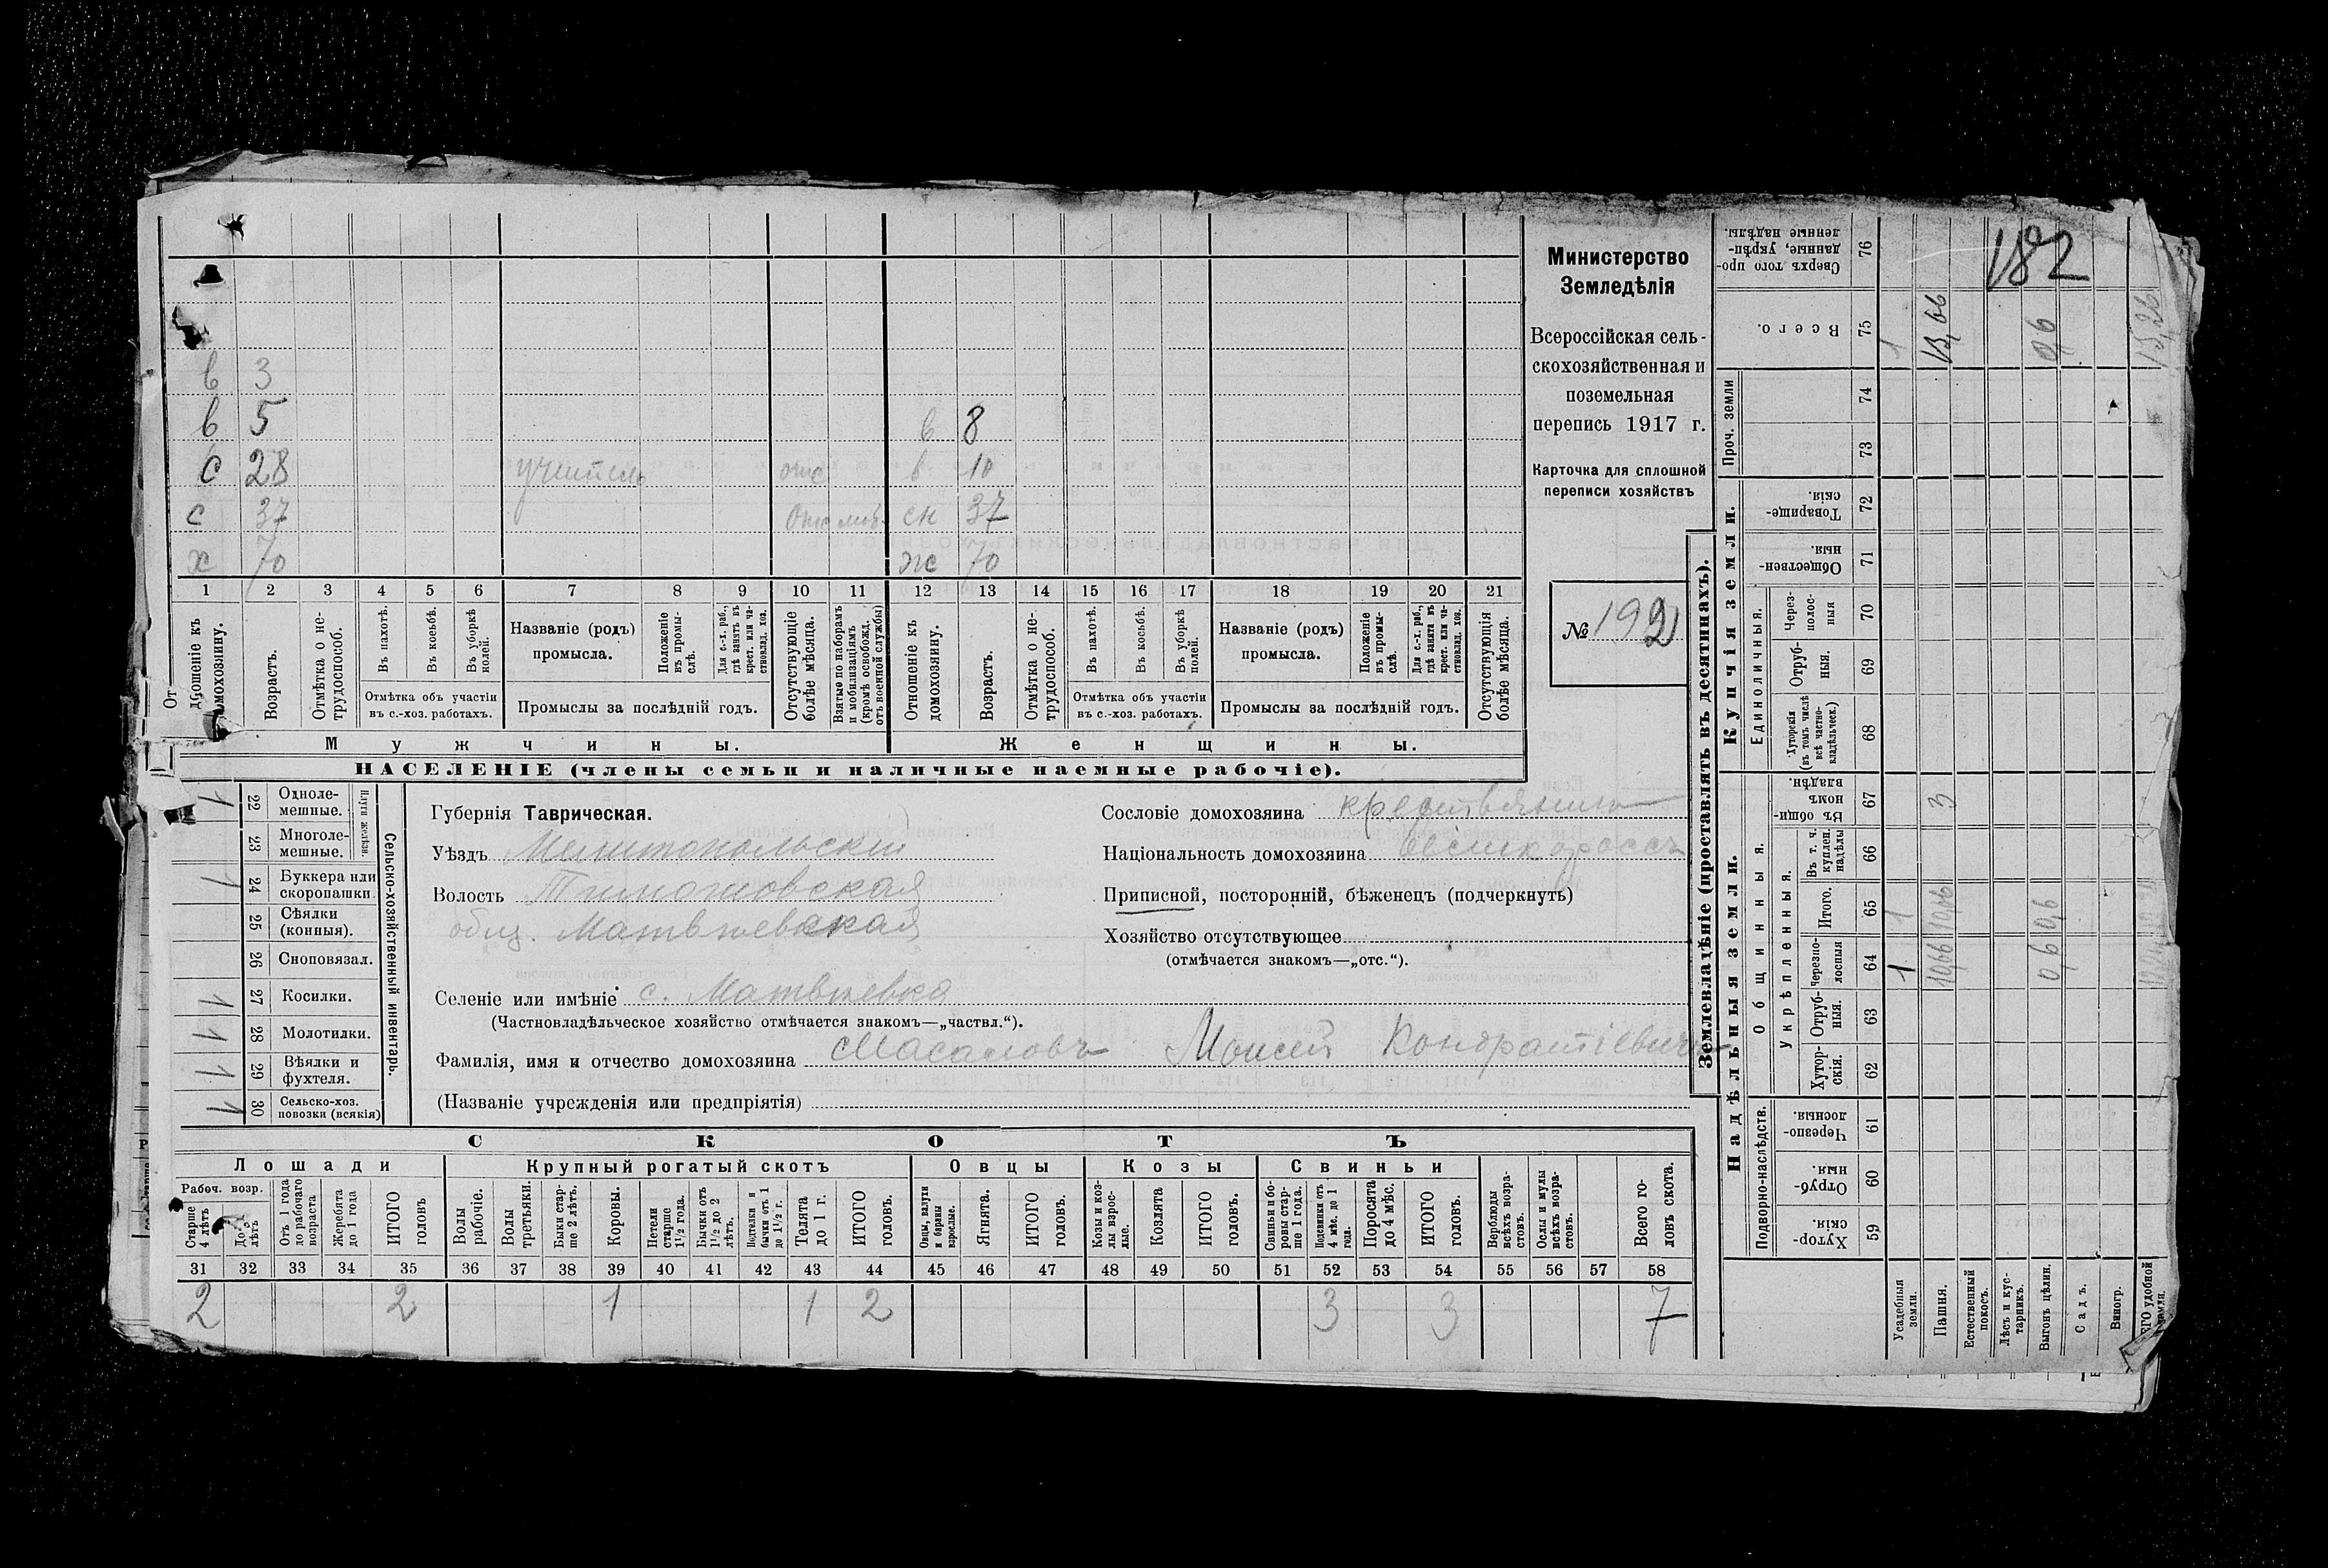 182
Министерство
Земледѣлія
Всероссійская сель-
скохозяйственная и
поземельная
перепись 1917 г.
Карточка для сплошной
переписи хозяйствъ
№ 192
в 3
в 5 в 8
с 28 учитель отс в 10
с 37 отс моб. сн 37
х 70 ж 70
1 2 3 4 5 6 7 8 9 10 11 12 13 14 15 16 17 18 19 20 21
Отношеніе къ домохозяину.
Возрастъ.
Отмѣтка о не-трудоспособ.
Въ пахотѣ.
Въ косьбѣ.
Въ уборкѣ полей.
Отмѣтка объ участіи въ с.-хоз. работахъ.
Названіе (родъ) промысла.
Положеніе въ промы-слѣ.
Для с.-х. раб., гдѣ занятъ въ крест. или ча-стновлад. хоз.
Промыслы за послѣдній годъ.
Отсутствующіе болѣе мѣсяца.
Взятые по наборамъ и мобилизаціямъ (кромѣ освобожд. отъ военной службы)
Отношеніе къ домохозяину.
Возрастъ.
Отмѣтка о не-трудоспособ.
Въ пахотѣ.
Въ косьбѣ.
Въ уборкѣ полей.
Отмѣтка объ участіи въ с.-хоз. работахъ.
Названіе (родъ) промысла.
Положеніе въ промы-слѣ.
Для с.-х. раб., гдѣ занята въ крест. или ча-стновлад. хоз.
Промыслы за послѣдній годъ.
Отсутствующія болѣе мѣсяца.
Мужчины. Женщины.
НАСЕЛЕНІЕ (члены семьи и наличные наемные рабочіе).
Сельско-хозяйственный инвентарь.
Плуги желѣзн.
1 22 Одноле-мешные.
23 Многоле-мешные.
1 24 Буккера или скоропашки.
25 Сѣялки (конныя).
26 Сноповязал.
1 27 Косилки.
1 28 Молотилки.
1 29 Вѣялки и фухтеля.
1 30 Сельско-хоз. повозки (всякія)
Губернія Таврическая.
Уѣздъ Мелитопольскій
Волость Тимошовская
общ. Матвѣевская
Селеніе или имѣніе с. Матвѣевка
(Частновладѣльческое хозяйство отмѣчается знакомъ—„частвл.“).
Фамилія, имя и отчество домохозяина Масаловъ Моисей Кондратіевичъ
(Названіе учрежденія или предпріятія)
Сословіе домохозяина крестьянинъ
Національность домохозяина великороссъ
Приписной, посторонній, бѣженецъ (подчеркнуть)
Хозяйство отсутствующее
(отмѣчается знакомъ—„отс.“).
СКОТЪ
Лошади Крупный рогатый скотъ Овцы Козы Свиньи
Рабоч. возр.
Старше 4 лѣтъ
До 4 лѣтъ
Отъ 1 года до рабочаго возраста
Жеребята до 1 года
ИТОГО головъ
Волы рабочіе.
Волы третьяки.
Быки стар-ше 2 лѣтъ.
Коровы.
Нетели старше 1½ года.
Бычки отъ 1½ до 2 лѣтъ.
Подтелки и бычки отъ 1 до 1½ г.
Телята до 1 г.
ИТОГО головъ.
Овцы, валухи и бараны взрослые.
Ягнята.
ИТОГО головъ.
Козы и коз-лы взрос-лые.
Козлята
ИТОГО головъ.
Свиньи и бо-ровы стар-ше 1 года.
Подсвинки отъ 4 мѣс. до 1 года.
Поросята до 4 мѣс.
ИТОГО головъ.
Верблюды всѣхъ возра-стовъ.
Ослы и мулы всѣхъ возра-стовъ.
Всего го-ловъ скота.
31 32 33 34 35 36 37 38 39 40 41 42 43 44 45 46 47 48 49 50 51 52 53 54 55 56 57 58
2 2 1 1 2 3 3 7
Землевладѣніе (проставлять въ десятинахъ).
Надѣльныя земли. Купчія земли. Проч. земли
Подворно-наслѣдств.
Общинныя.
Укрѣпленныя.
Единоличныя.
Хутор-скія. 59
Отруб-ныя. 60
Черезпо-лосныя. 61
Хутор-скія. 62
Отруб-ныя. 63
Черезпо-лосныя 64 1 10,66 0,6
Итого. 65 1 10,66 0,6
Въ т. ч. куплен. надѣлы 66
Въ общин-номъ владѣн. 67 3
Хуторскія (въ томъ числѣ всѣ частно-владѣльческ.) 68
Отруб-ныя. 69
Через-полос-ныя 70
Обществен-ныя. 71
Товарище-скія. 72
73
74
Всего. 75 1 13,66 0,6 15,26
Сверхъ того про-данные, укрѣп-ленные надѣлы. 76
Усадебныя земли.
Пашня.
Естественный покосъ.
Лѣсъ и кус-тарникъ.
Выгонъ цѣлин.
Садъ.
Виногр.